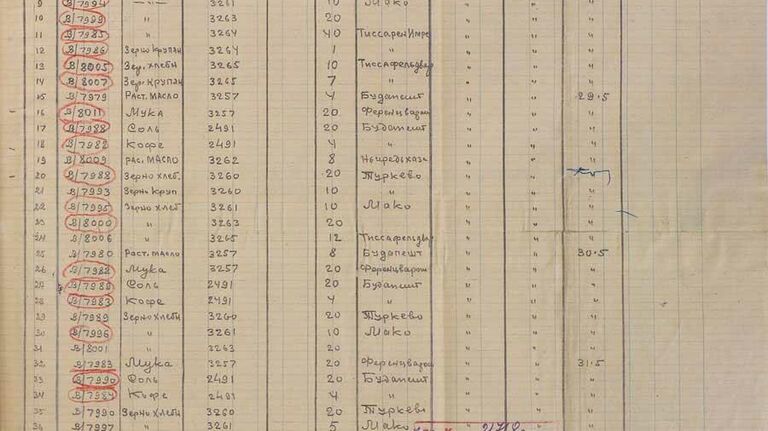 9 В/7994 — „ — 3261 10 Мако „ „ „
10 В/7999 „ 3263 20 „ „ „
11 В/7985 „ 3264 40 Тиссарен Имре „ „ „
12 В/7986 Зерно Крупян 3264 1 „ „ „ „
13 В/8005 Зер. Хлебн 3265 10 „ „ „
14 В/8007 Зер. Крупан 3265 7 „ „ „ „
15 В/7979 Раст. Масло 3257 4 Будапешт „ „ 29.5
16 В/8011 Мука 3257 20 Ференцварош „ „ „
17 В/7988 Соль 2491 20 Будапешт „ „ „
18 В/7982 Кофе 2491 4 „ „ „ „
19 В/8009 Рас. Масло 3262 8 „ „ „
20 В/7988 Зерно хлеб. 3260 20 Туркево „ „
21 В/7993 Зерно Круп 3260 10 „ „ „ „
22 В/7995 Зерно хлеб 3261 10 Мако „ „ „
23 В/8000 „ 3263 20 „ „ „
24 В/8006 „ 3265 12 „ „ „
25 В/7980 Раст. Масло 3257 8 Будапешт „ „ 30.5
26 В/7982 Мука 3257 20 Ференцварош „ „ „
27 В/7989 Соль 2491 20 Будапешт „ „ „
28 В/7983 Кофе 2491 4 „ „ „ „
29 В/7989 Зерно Хлебн 3260 20 Туркево „ „ „
30 В/7996 „ 3261 10 Мако „ „ „
31 В/8001 „ 3263 20 „ „ „
32 В/7983 Мука 3257 20 Ференцварош „ „ 31.5
33 В/7990 Соль 2491 20 Будапешт „ „ „
34 В/7984 Кофе 2491 4 „ „ „ „
35 В/7990 Зерно Хлебн 3260 20 Туркево „ „ „
36 В/7997 „ 3261 5 Мако „ „